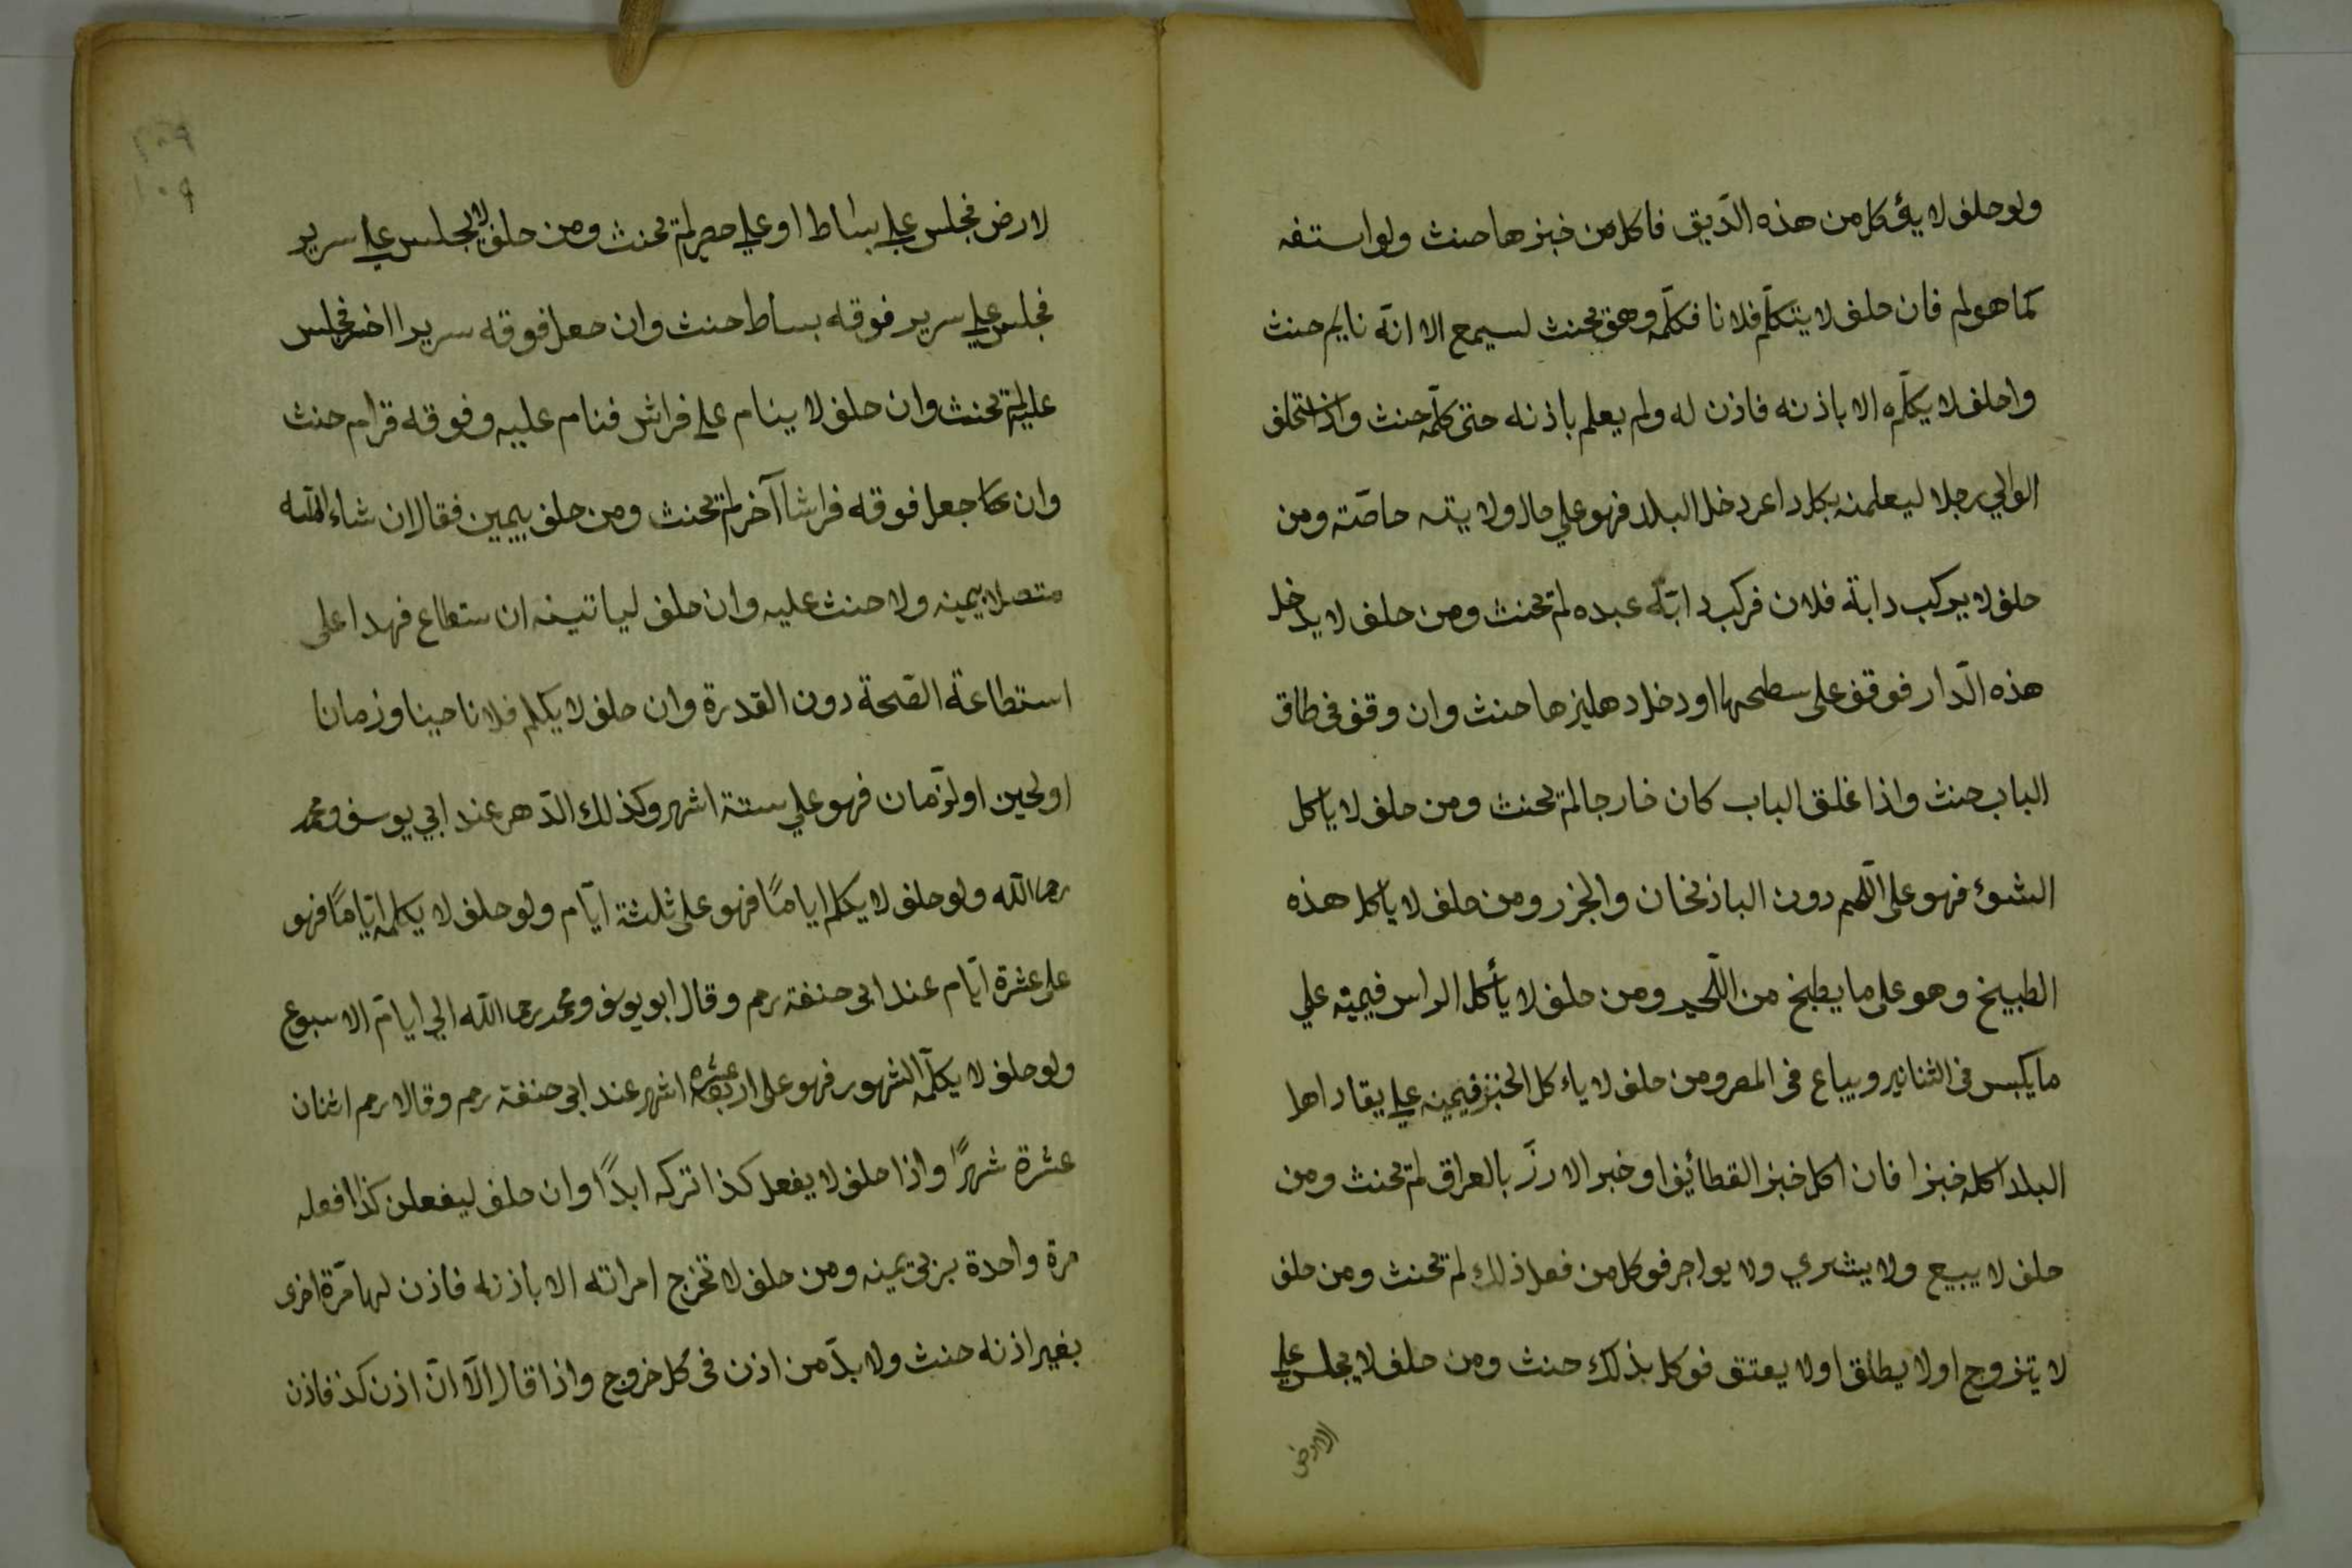 ولو حلف لا يؤكل من هذه الدّيق فاكل من خبزها حنث ولو استفه
كما هو لم فان حلف لا يتكلّم فلانا فكلّمه وهو بحنث ليسمع الا انّه نايم حنث
واحلف لا يكلّمه الا باذنه فاذن له ولم يعلم باذنه حتى كلّمه حنث واذا ستحلف
الوالي رجلا ليعلمنه بكل داعر دخل البلد فهو علي حال ولايته خاصّة ومن
حلف لا يركب دابة فلان فركب دابّة عبده لم يحنث ومن حلف لا يدخل
هذه الدّار فوقف على سطحها او دخل دهليزها حنث وان وقف فى طاق
الباب حنث واذا غلق الباب كان خارجا لم يحنث ومن حلف لا ياكل
الشوئ فهو على اللّحم دون الباذنخان والجزر ومن حلف لا ياكل هذه
الطبيخ وهو على ما يطبخ من اللّحم ومن حلف لا يأكل الراس فيمينه علي
ما يكبس فى الثنانير ويباع فى المصر ومن حلف لا ياء كل الخبز فيمينه علي يقاد اهل
البلد اكله خبزا فان اكل خبز القطائيف او خبر الارزّ بالعراق لم يحنث ومن
حلف لا يبيع ولا يشري ولا يواجر فوكل من فعل ذلك لم يحنث ومن حلف
لا يتزوج او لا يطلق او لا يعتق فوكل بذلك حنث ومن حلف لا يجلس علي
الارض
٢٠٩
١٠٩
لارض فجلس علي بساط او علي حصير لم يحنث ومن حلف لا يجلس علي سرير
فجلس علي سرير فوقه بساط حنث وان جعل فوقه سريرا اخر فجلس
عليه لم يحنث وان حلف لا ينام علي فراش فنام عليه وفوقه قرام حنث
وان جعل فوقه فراشا آخر لم يحنث ومن حلف بيمين فقال ان شاء اللّه
متصلا بيمينه ولا حنث عليه وان حلف لياتينه ان ستطاع فهدا على
استطاعة الصّحة دون القدرة وان حلف لا يكلم فلانا حينا وزمانا
او لحين او لزّمان فهو علي ستة اشهر وكذلك الدّهر عند ابي يوسف ومحمد
رحما اللّه ولو حلف لا يكلم اياماً فهو على ثلثة ايّام ولو حلف لا يكلمه ايّاماً فهو
على عشرة ايّام عند ابى حنفة رحم وقال ابو يوسف ومحمد رحما اللّه الي ايّام الاسبوع
ولو حلف لا يكلّمه الشهور فهو على اربعة عشرة اشهر عند ابى حنفة رحم وقالا رحم اثنان
عشرة شهراً واذا حلف لا يفعل كذا تركه ابداً وان حلف ليفعلن كذا فعله
مرة واحدة بر فى يمينه ومن حلف لا تخرج امراته الا باذنه فاذن لها مرّة اخرى
بغير اذنه حنث ولا بدّ من اذن فى كل خروج واذا قال الّا انّ اذن كذ فاذن